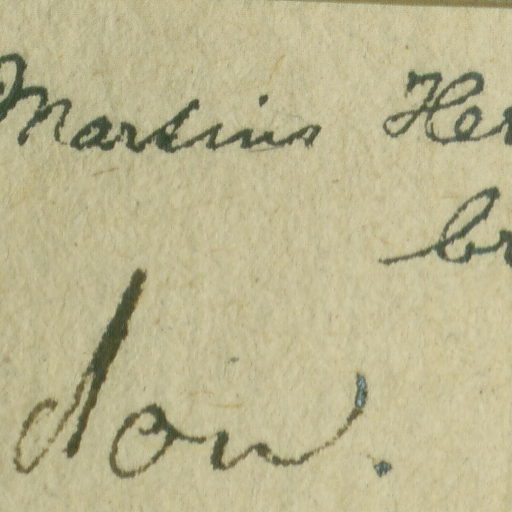 Martins Her
br
dow.